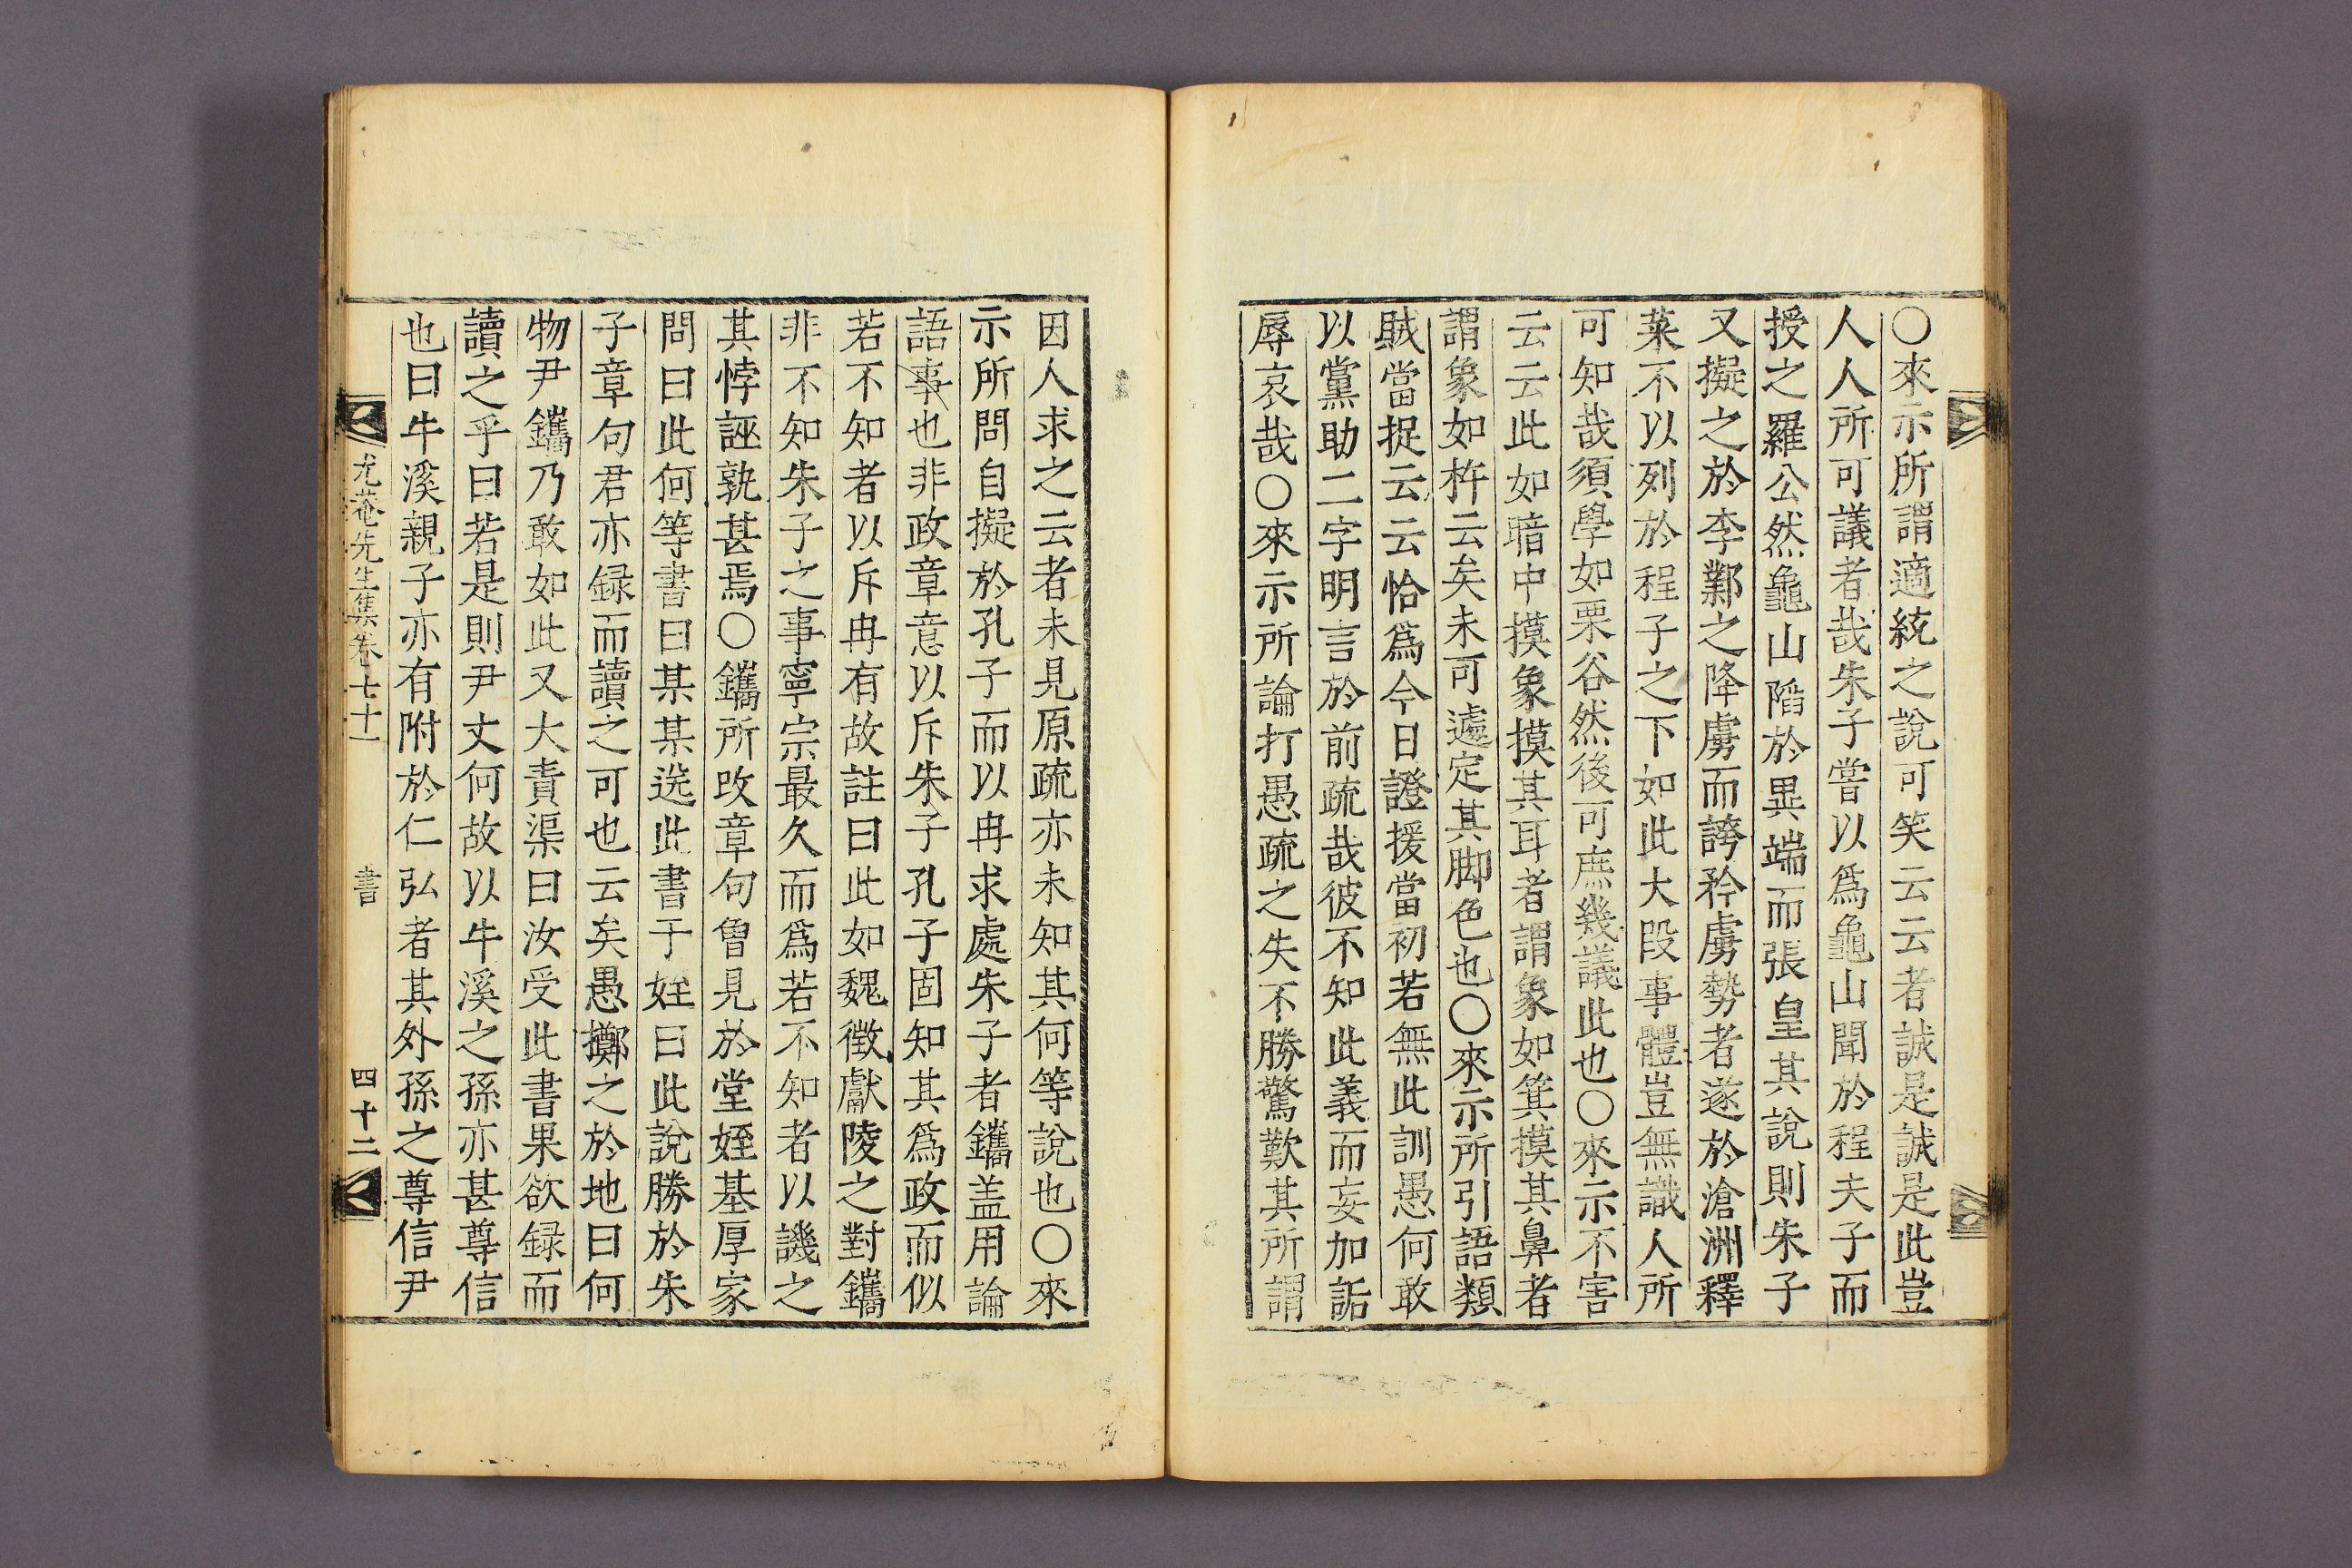 〇來示所謂適統之說可笑云云者誠是誠是此豈
人人所可議者哉朱子嘗以爲龜山聞於程夫子而
授之羅公然龜山陷於異端而張皇其說則朱子
又擬之於李鄴之降虜而誇矜虜勢者遂於滄洲釋
菜不以列於程子之下如此大段事體豈無識人所
可知哉須學如栗谷然後可庶幾議此也〇來示不害
云云此如暗中摸象摸其耳者謂象如箕摸其鼻者
謂象如杵云矣未可遽定其脚色也〇來示所引語類
賊當捉云云恰爲今日證援當初若無此訓愚何敢
以黨助二字明言於前疏哉彼不知此義而妄加詬
辱哀哉〇來示所論打愚疏之失不勝驚歎其所謂
因人求之云者未見原疏亦未知其何等說也〇來
示所問自擬於孔子而以冉求處朱子者鑴盖用論
語事也非政章意以斥朱子孔子固知其爲政而似
若不知者以斥冉有故註曰此如魏徵獻陵之對鑴
非不知朱子之事寧宗最久而爲若不知者以譏之
其悖誣孰甚焉〇鑴所改章句曾見於堂姪基厚家
問曰此何等書曰某某送此書于姪曰此說勝於朱
子章句君亦録而讀之可也云矣愚擲之於地曰何
物尹鑴乃敢如此又大責渠曰汝受此書果欲録而
讀之乎曰若是則尹丈何故以牛溪之孫亦甚尊信
也曰牛溪親子亦有附於仁弘者其外孫之尊信尹
尤菴先生集卷七十一　書　四十二